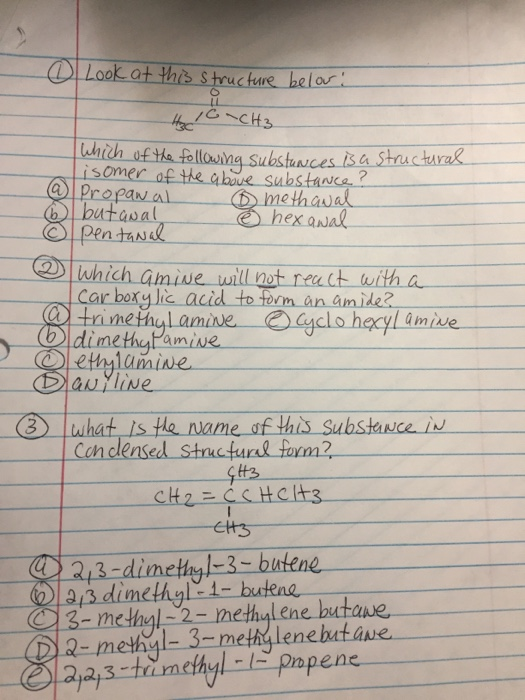 ① Look at this structure below:
O
||
H3C C CH3
Which of the following substances is a structural
isomer of the above substance?
ⓐ Propanal Ⓓ methanal
ⓑ butanal ⓔ hexanal
ⓒ pentanal
② Which amine will not react with a
carboxylic acid to form an amide?
ⓐ trimethylamine ⓔ cyclohexylamine
ⓑ dimethylamine
ⓒ ethylamine
Ⓓ aniline
③ what is the name of this substance in
condensed structural form?
CH3
CH2 = CCHCH3
CH3
ⓐ 2,3-dimethyl-3-butene
ⓑ 2,3 dimethyl-1-butene
ⓒ 3-methyl-2-methylene butane
Ⓓ 2-methyl-3-methylenebutane
ⓔ 2,2,3-trimethyl-1-propene